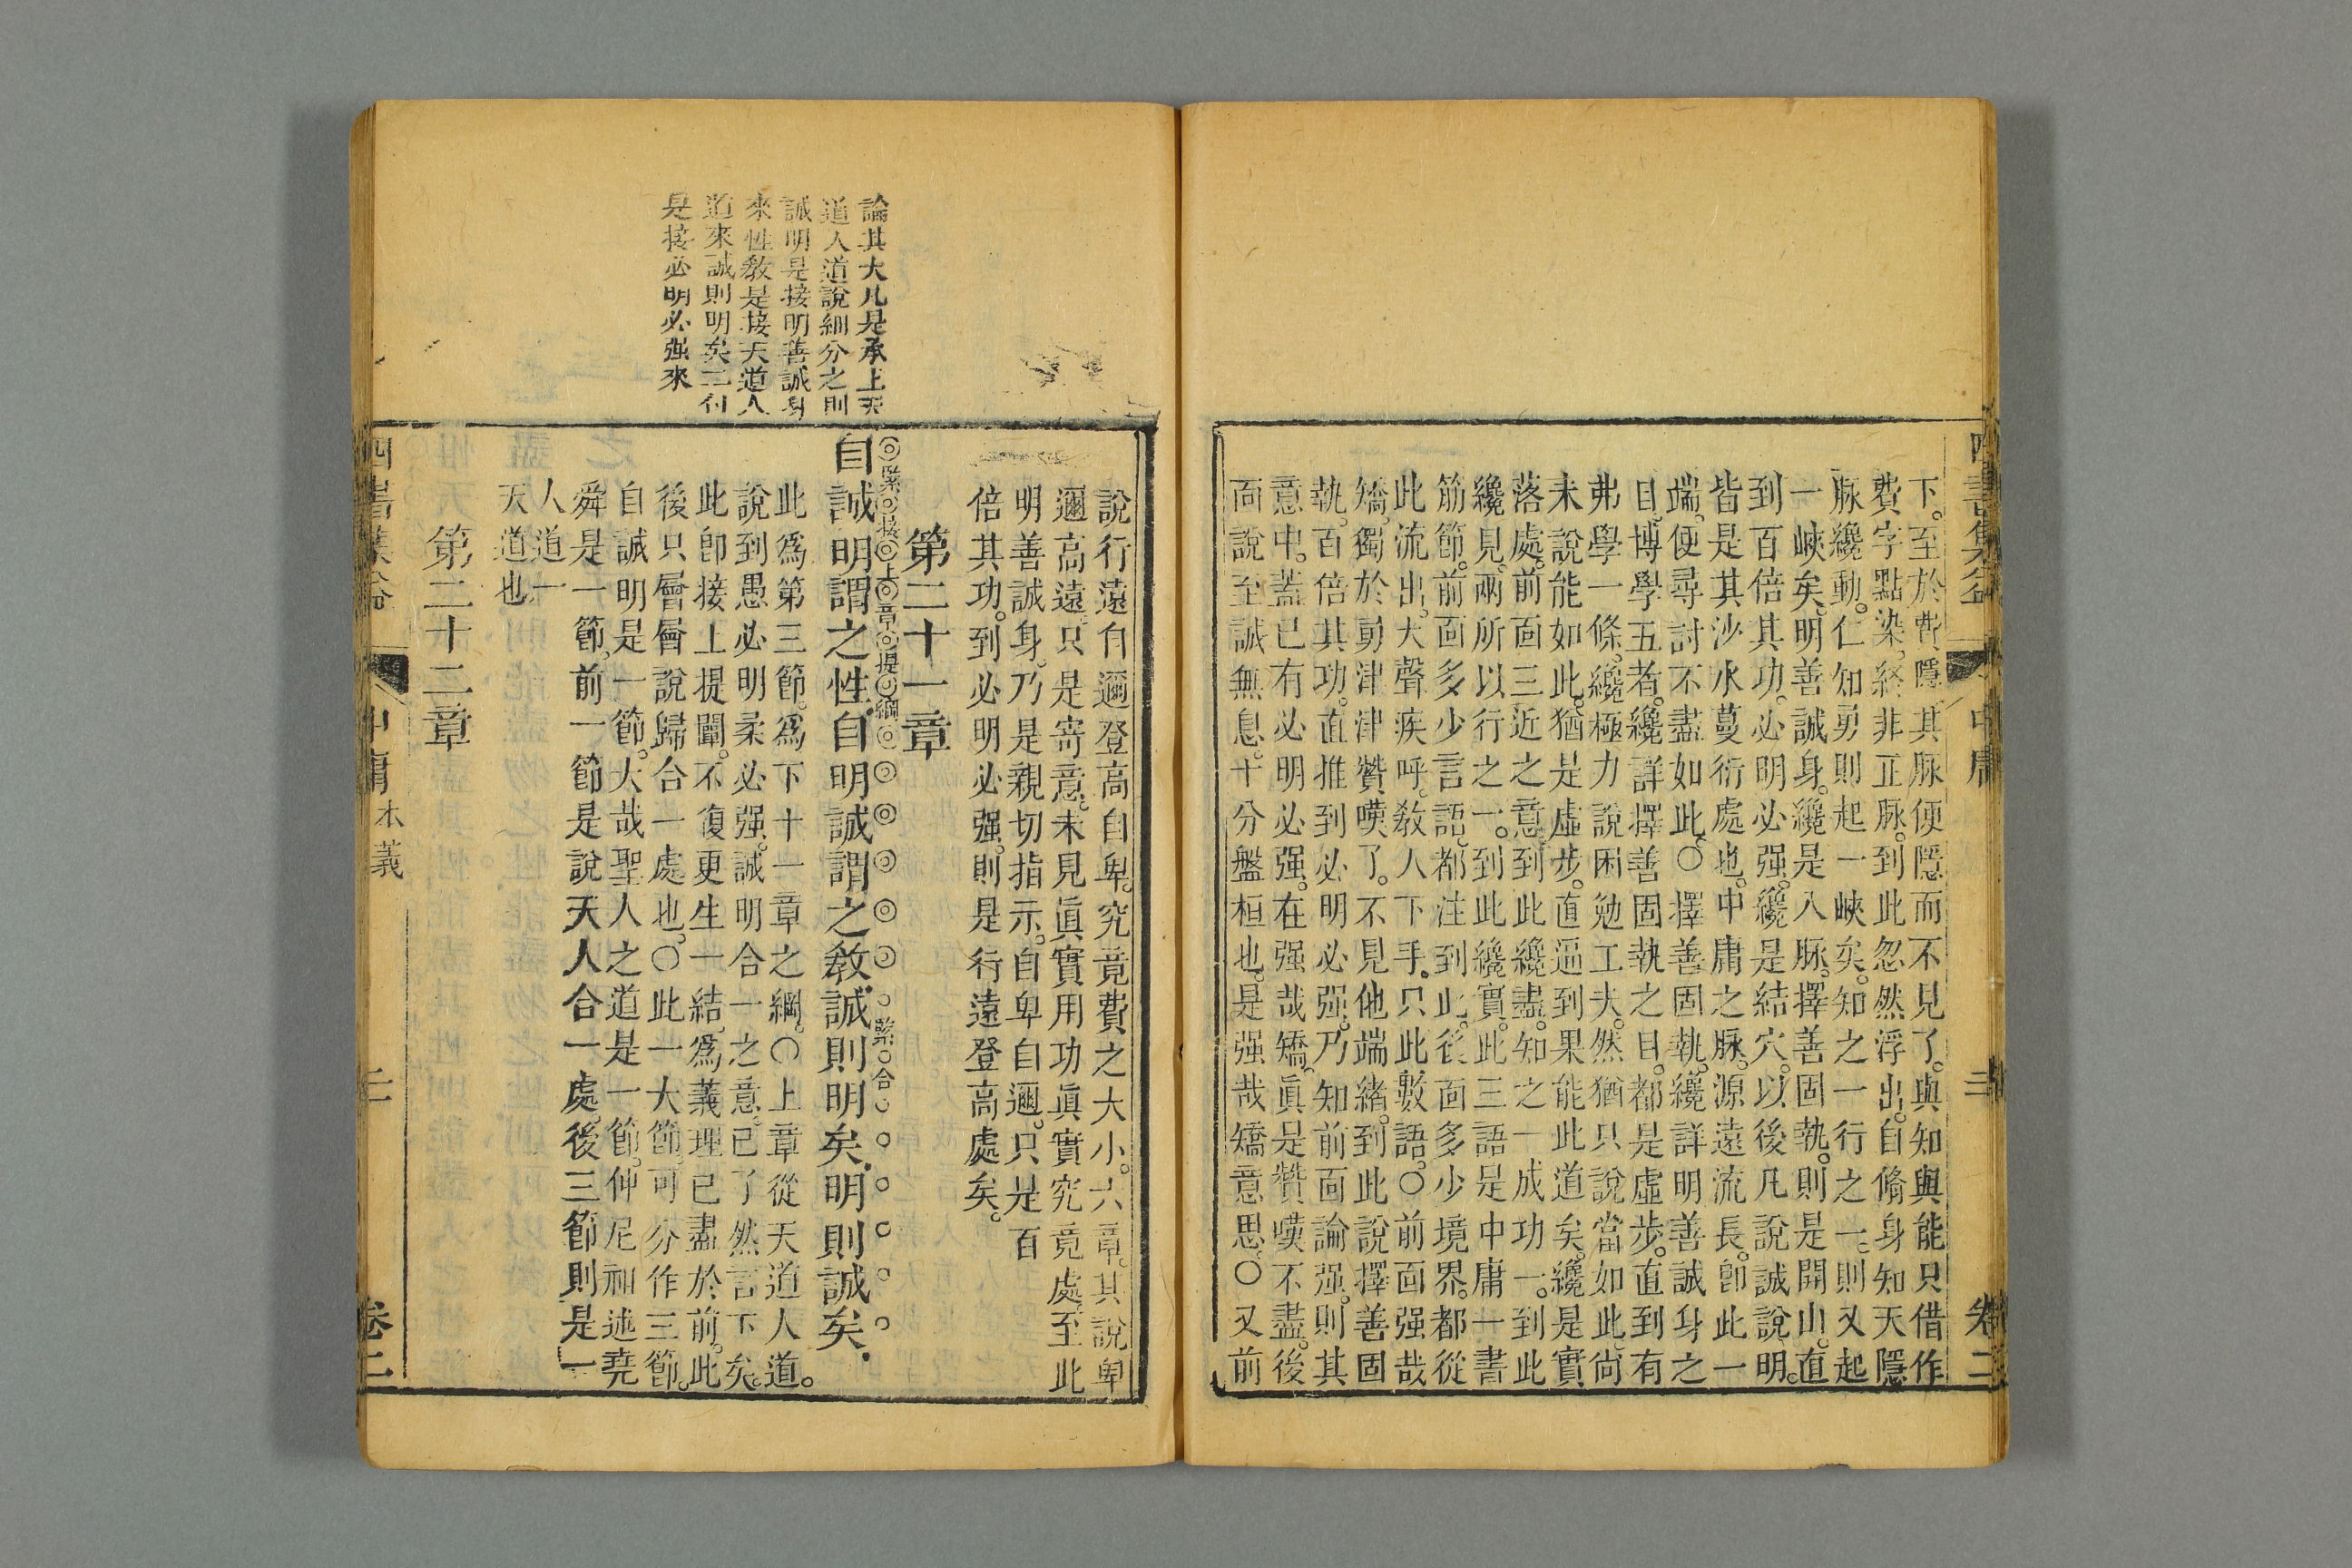 四書集益　中庸　三　卷二
下。至於費隱其脉便隱而不見了。與知與能只借作
費字點染。終非正脉。到此忽然浮出。自脩身知天隱
脉纔動。仁知勇則起一峽矣。知之一行之一。則又起
一峽矣。明善誠身。纔是入脉。擇善固執。則是開山。直
到百倍其功。必明必强。纔是結穴。以後凡說誠說明。
皆是其沙水蔓衍處也。中庸之脉。源遠流長。卽此一
端。便尋討不盡如此。〇擇善固執。纔詳明善誠身之
目。博學五者。纔詳擇善固執之目。都是虛步。直到有
弗學一條。纔極力說困勉工夫。然猶只說當如此。尙
未說能如此。猶是虛步。直逼到果能此道矣。纔是實
落處。前面三近之意。到此纔盡。知之一成功一。到此
纔見。兩所以行之一。到此纔實。此三語是中庸一書
筋節。前面多少言語。都注到此。後面多少境界。都從
此流出。大聲疾呼。敎人下手。只此數語。〇前面强哉
矯。獨於勇津津贊嘆了。不見他端緒。到此說擇善固
執。百倍其功。直推到必明必强。乃知前面論强。則其
意中。蓋已有必明必强。在强哉矯。眞是贊嘆不盡。後
面說至誠無息。十分盤桓也。是强哉矯意思。〇又前
說行遠自邇登高自卑。究竟費之大小。六章。其說卑
邇高遠。只是寄意。未見眞實用功眞實究竟處。至此
明善誠身。乃是親切指示。自卑自邇。只是百
倍其功。到必明必强。則是行遠登高處矣。
第二十一章
緊接上章提綱
緊合
自誠明謂之性。自明誠謂之敎。誠則明矣。明則誠矣。
論其大凡是承上天
道人道說細分之則
誠明是接明善誠身
來性敎是接天道人
道來誠則明矣二句
是接必明必强來
此爲第三節。爲下十一章之綱。〇上章從天道人道。
說到愚必明柔必强。誠明合一之意。已了然言下矣。
此卽接上提闡。不復更生一結。爲義理已盡於前。此
後只層層說歸合一處也。〇此一大節。可分作三節。
自誠明是一節。大哉聖人之道是一節。仲尼祖述堯
舜是一節。前一節是說天人合一處。後三節則是一
人道一
天道也
第二十二章
四書集益　中庸　本義　三　卷二